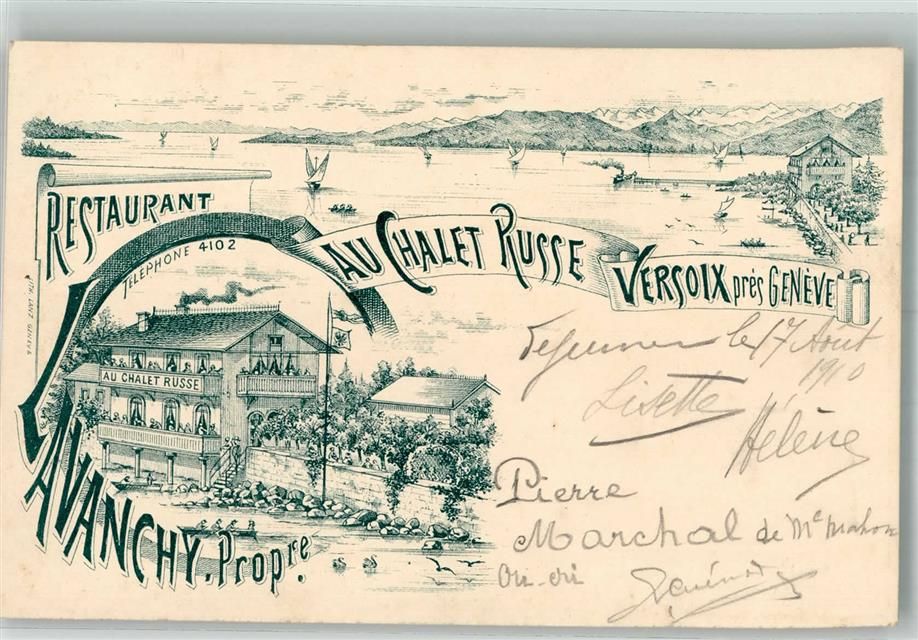 RESTAURANT
TELEPHONE 4102
AU CHALET RUSSE
VERSOIX près GENÈVE
LITH. LANZ GENÈVE
AU CHALET RUSSE
J. AVANCHY, Propre.
Dejeuner le 17 Août
1910
Lisette
Hélène
Pierre
Marchal de Mc Mahon